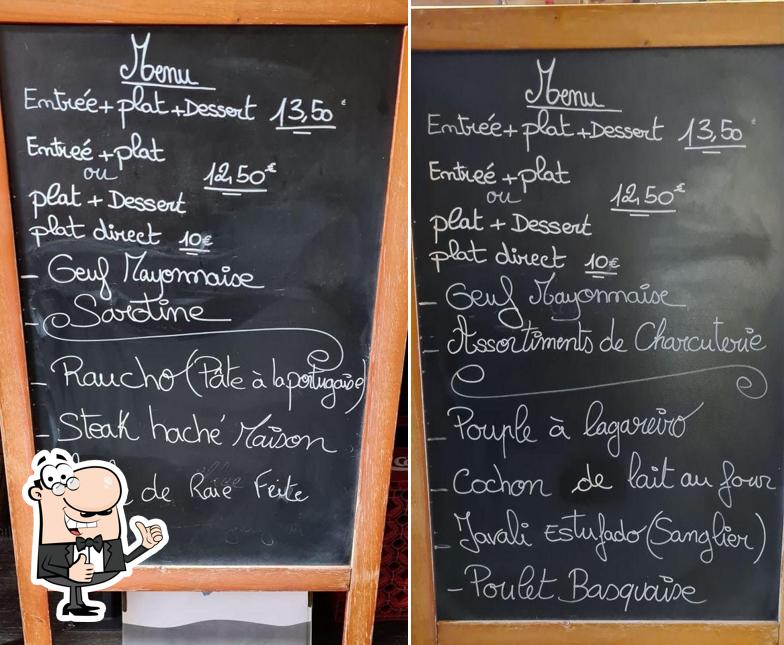 Menu
Entrée + plat + Dessert 13,50 €
Entreé + plat
ou
12,50€
plat + Dessert
plat direct 10€
- Oeuf Mayonnaise
- Sardine
- Raucho (Pâte à la portugaise)
- Steak haché Maison
de Raie Frite
Menu
Entrée + plat + Dessert 13,50 €
Entreé + plat
ou
12,50€
plat + Dessert
plat direct 10€
- Oeuf Mayonnaise
- Assortiments de Charcuterie
- Poulpe à lagareiro
- Cochon de lait au four
- Javali Estufado (Sanglier)
- Poulet Basquaise